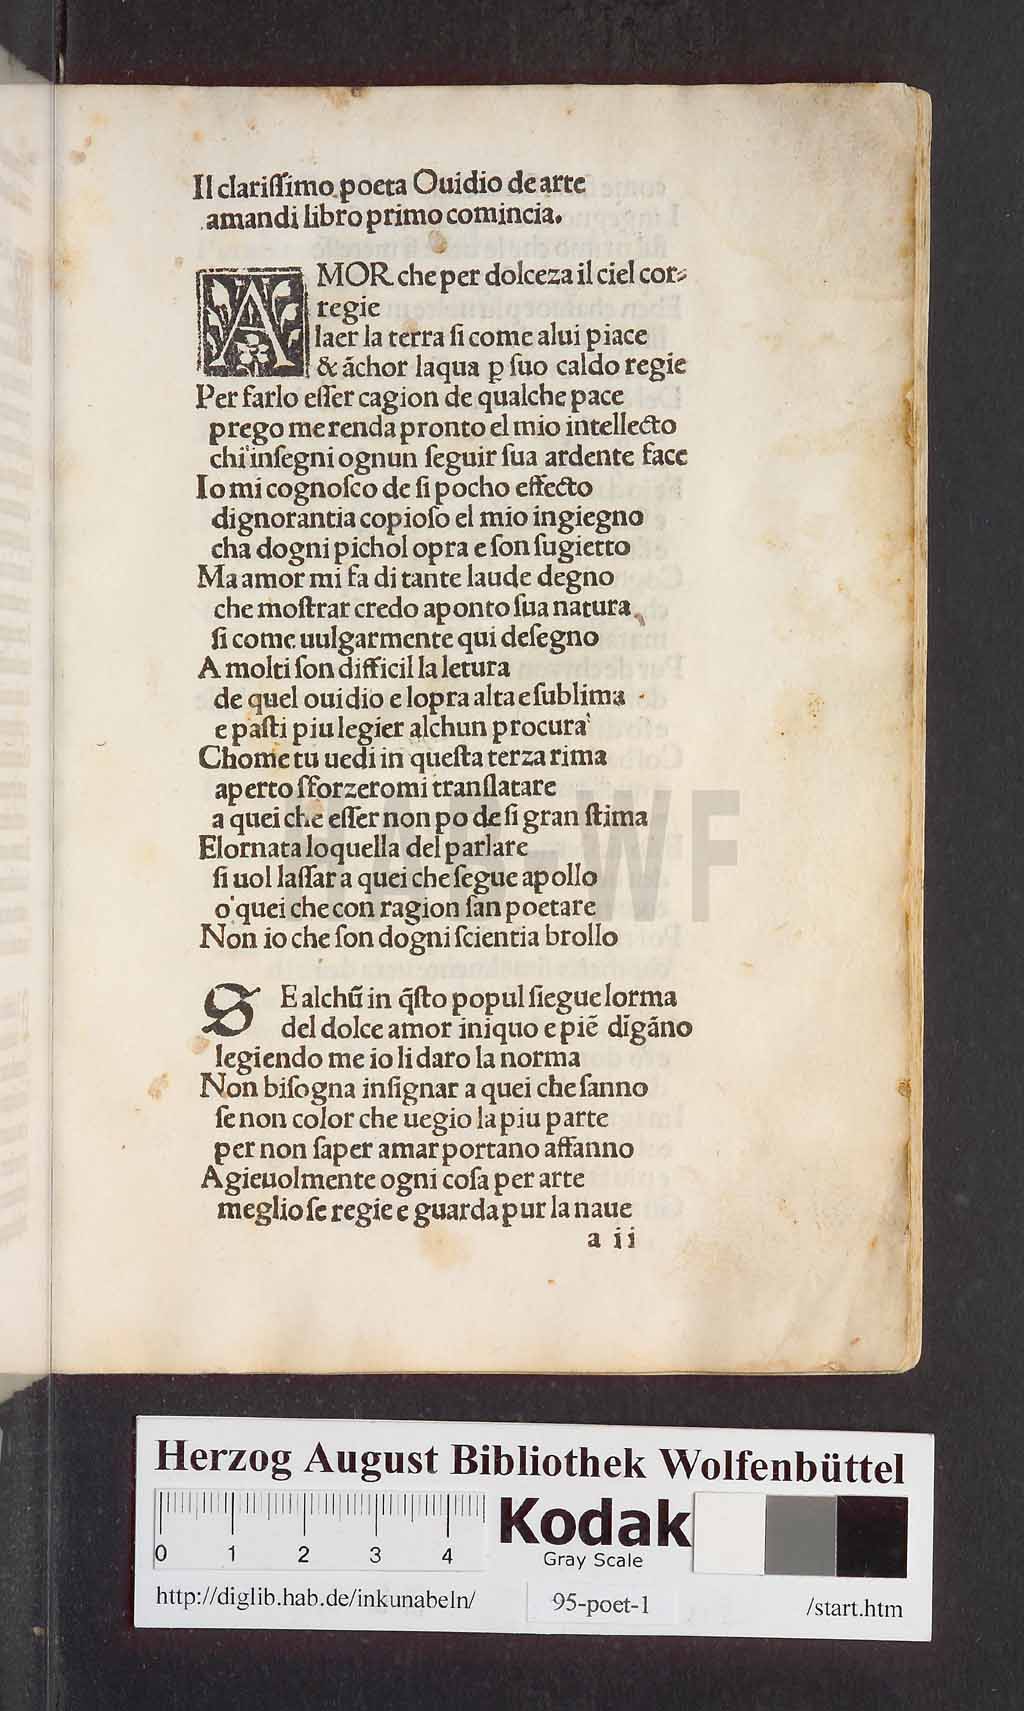 Il clariſſimo poeta Ouidio de arte
amandi libro primo comincia.
AMOR che per dolceza il ciel cor⸗
regie
laer la terra ſi come alui piace
& āchor laqua ꝑ ſuo caldo regie
Per farlo eſſer cagion de qualche pace
prego me renda pronto el mio intellecto
chi inſegni ognun ſeguir ſua ardente face
Io mi cognoſco de ſi pocho effecto
dignorantia copioſo el mio ingiegno
cha dogni pichol opra e ſon ſugietto
Ma amor mi fa di tante laude degno
che moſtrar credo aponto ſua natura
ſi come uulgarmente qui deſegno
A molti ſon difficil la letura
de quel ouidio e lopra alta e ſublima
e paſti piu legier alchun procura
Chome tu uedi in queſta terza rima
aperto ſforzeromi tranſlatare
a quei che eſſer non po de ſi gran ſtima
Elornata loquella del parlare
ſi uol laſſar a quei che ſegue apollo
o quei che con ragion ſan poetare
Non io che ſon dogni ſcientia brollo
SE alchū in q̄ſto popul ſiegue lorma
del dolce amor iniquo e piē digāno
legiendo me io li daro la norma
Non biſogna inſignar a quei che ſanno
ſe non color che uegio la piu parte
per non ſaper amar portano affanno
Agieuolmente ogni coſa per arte
meglio ſe regie e guarda pur la naue
a ii
HAB-WF
Herzog August Bibliothek Wolfenbüttel
0 1 2 3 4
Kodak
Gray Scale
http://diglib.hab.de/inkunabeln/
95-poet-1
/start.htm